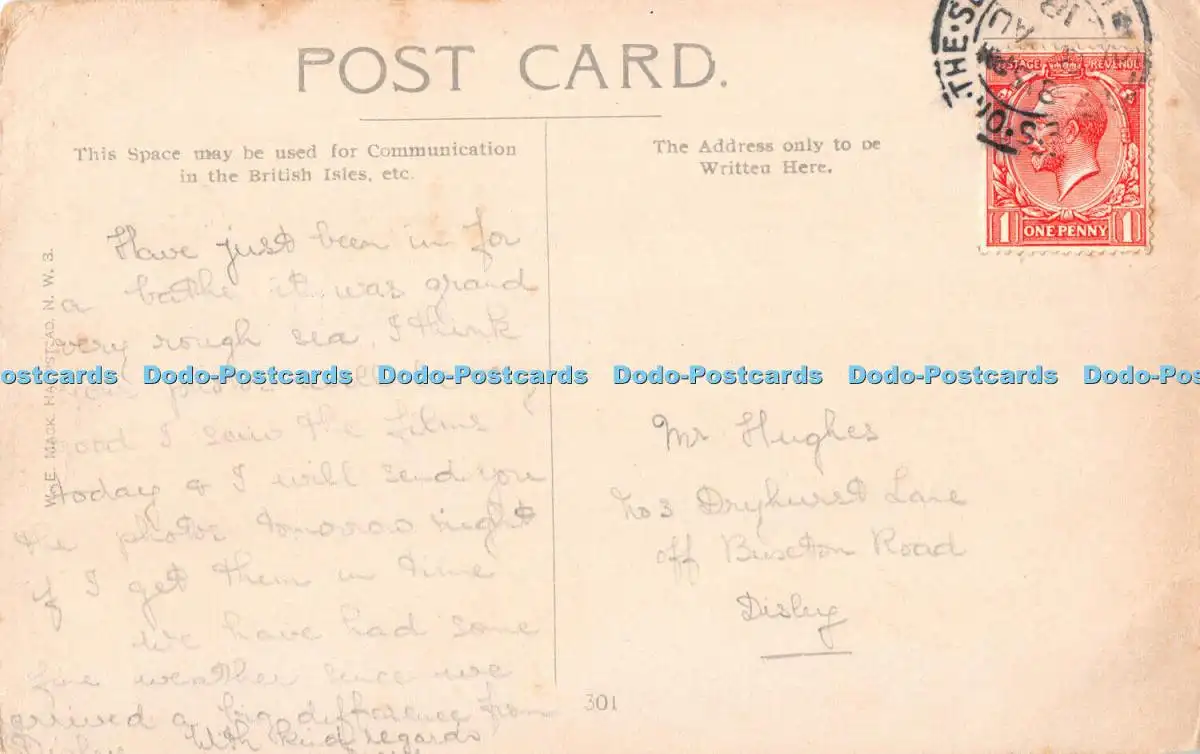 POST CARD.
This Space may be used for Communication
in the British Isles, etc.
The Address only to be
Written Here.
S. ON. THE. SE
18 AU
POSTAGE REVENUE
1 ONE PENNY 1
W. E. MACK, HAMPSTEAD, N. W. 3.
Have just been in for
a bathe it was grand
very rough sea, I think
your photos will be very
good I saw the films
today & I will send you
the photos tomorrow night
if I get them in time
We have had some
fine weather since we
arrived a big difference from
Disley With kind regards
Mr Hughes
No 3 Dryhurst Lane
off Buxton Road
Disley
301
ostcards Dodo-Postcards Dodo-Postcards Dodo-Postcards Dodo-Postcards Dodo-Pos